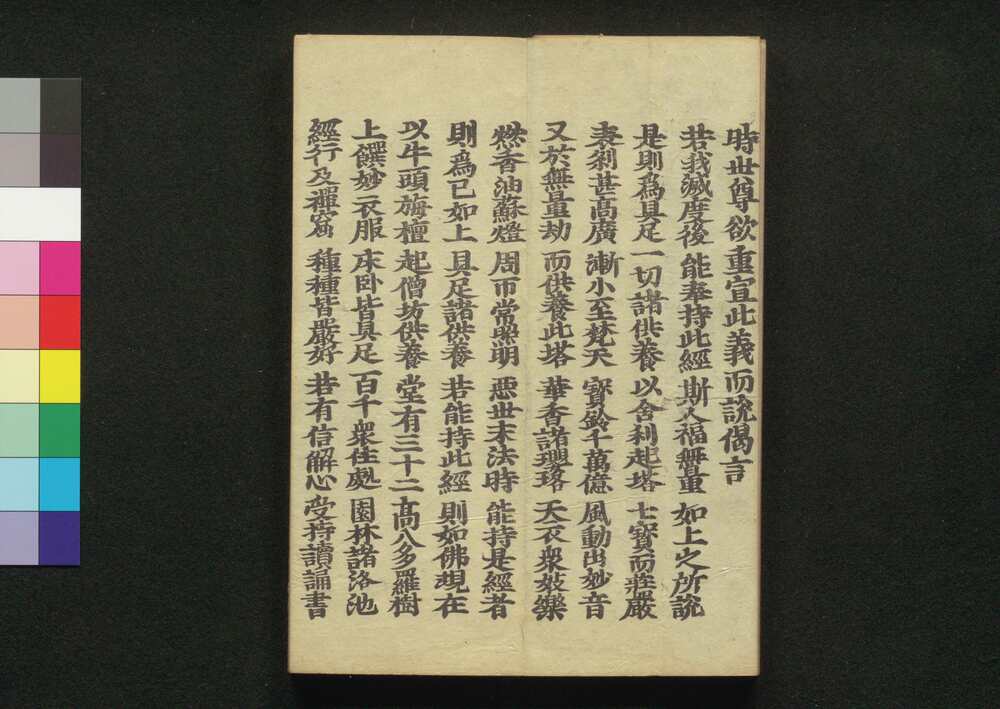 時世尊欲重宣此義而說偈言
若我滅度後 能奉持此經 斯人福無量 如上之所說
是則為具足 一切諸供養 以舍利起塔 七寶而莊嚴
表剎甚高廣 漸小至梵天 寶鈴千萬億 風動出妙音
又於無量劫 而供養此塔 華香諸瓔珞 天衣眾妓樂
燃香油蘇燈 周帀常照明 惡世末法時 能持是經者
則為已如上 具足諸供養 若能持此經 則如佛現在
以牛頭栴檀 起僧坊供養 堂有三十二 高八多羅樹
上饌妙衣服 床臥皆具足 百千眾住處 園林諸浴池
經行及禪窟 種種皆嚴好 若有信解心 受持讀誦書